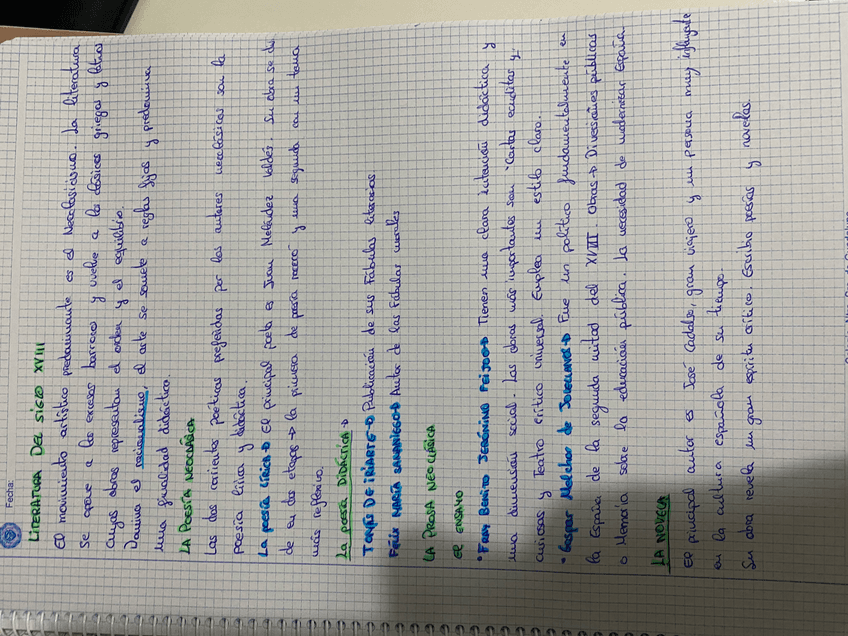 Fecha:
LITERATURA DEL SIGLO XVIII
El movimiento artístico predominante es el Neoclasicismo. La literatura
se opone a los excesos barrocos y vuelve a los clásicos griegos y latinos
cuyas obras representan el orden y el equilibrio.
Domina el racionalismo, el arte se somete a reglas fijas y predomina
una finalidad didáctica.
LA POESÍA NEOCLÁSICA
Las dos corrientes poéticas preferidas por los autores neoclásicos son la
poesía lírica y didáctica.
La poesía lírica → El principal poeta es Juan Meléndez Valdés. Su obra se di-
de en dos etapas → la primera de poesía rococó y una segunda con un tono
más reflexivo.
La poesía DIDÁCTICA →
TOMÁS DE IRIARTE → Publicación de sus Fábulas literarias
FÉLIX MARÍA SAMANIEGO → Autor de las Fábulas morales
LA PROSA NEOCLÁSICA
El ENSAYO
• FRAY BENITO JERÓNIMO FEIJOO → Tienen una clara intención didáctica y
una dimensión social. Las obras más importantes son "Cartas eruditas y
curiosas y Teatro crítico universal. Emplea un estilo claro.
• Gaspar Melchor de JOVELLANOS → Fue un político fundamentalmente en
la España de la segunda mitad del XVIII. Obras → Diversiones públicas
o Memoria sobre la educación pública. La necesidad de modernizar España
LA NOVELA
El principal autor es José Cadalso, gran viajero y un persona muy influyente
en la cultura española de su tiempo.
Su obra revela un gran espíritu crítico. Escribió poesías y novelas.